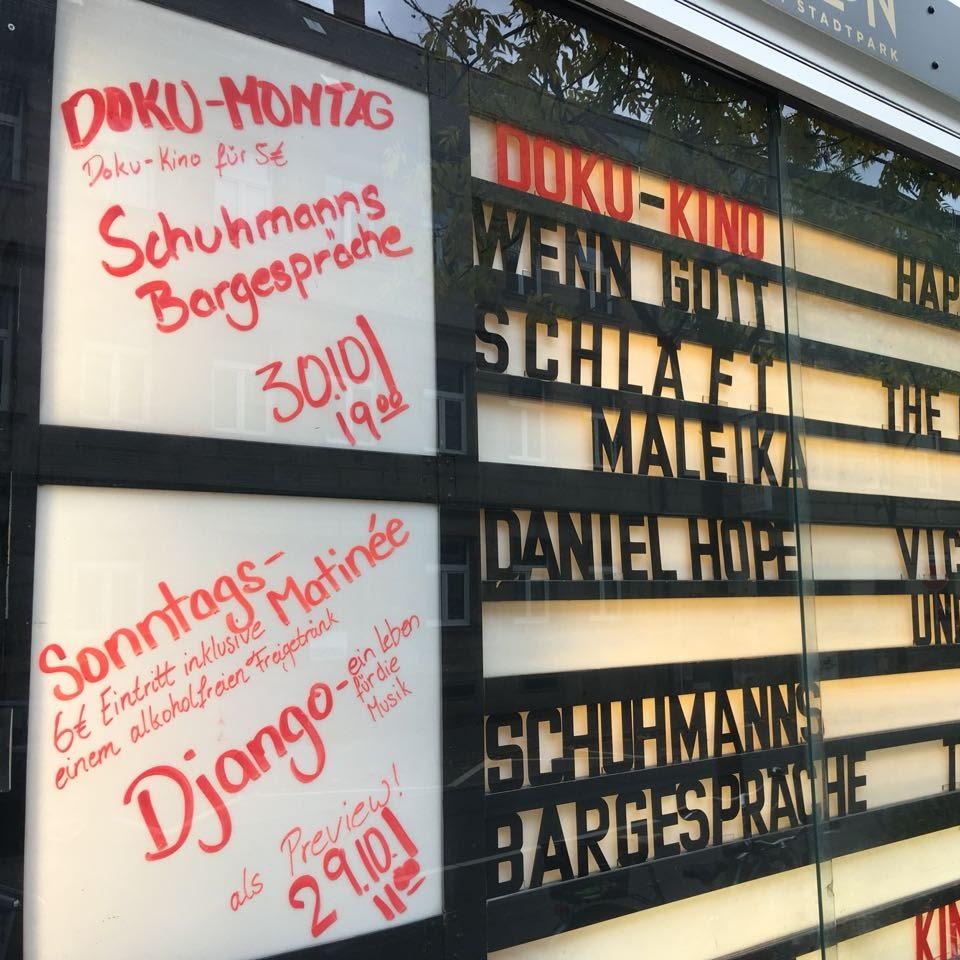 STADTPARK
DOKU-MONTAG
Doku-Kino für 5€
Schuhmanns
Bargespräche
30.10!
19 00
Sonntags-
Matinée
6€ Eintritt inklusive
einem alkoholfreien Freigetränk
Django-
ein Leben
für die
Musik
als Preview!
29.10.!
11 00
DOKU-KINO
WENN GOTT
SCHLAFT
MALEIKA
DANIEL HOPE
SCHUHMANNS
BARGESPRACHE
HAP
THE